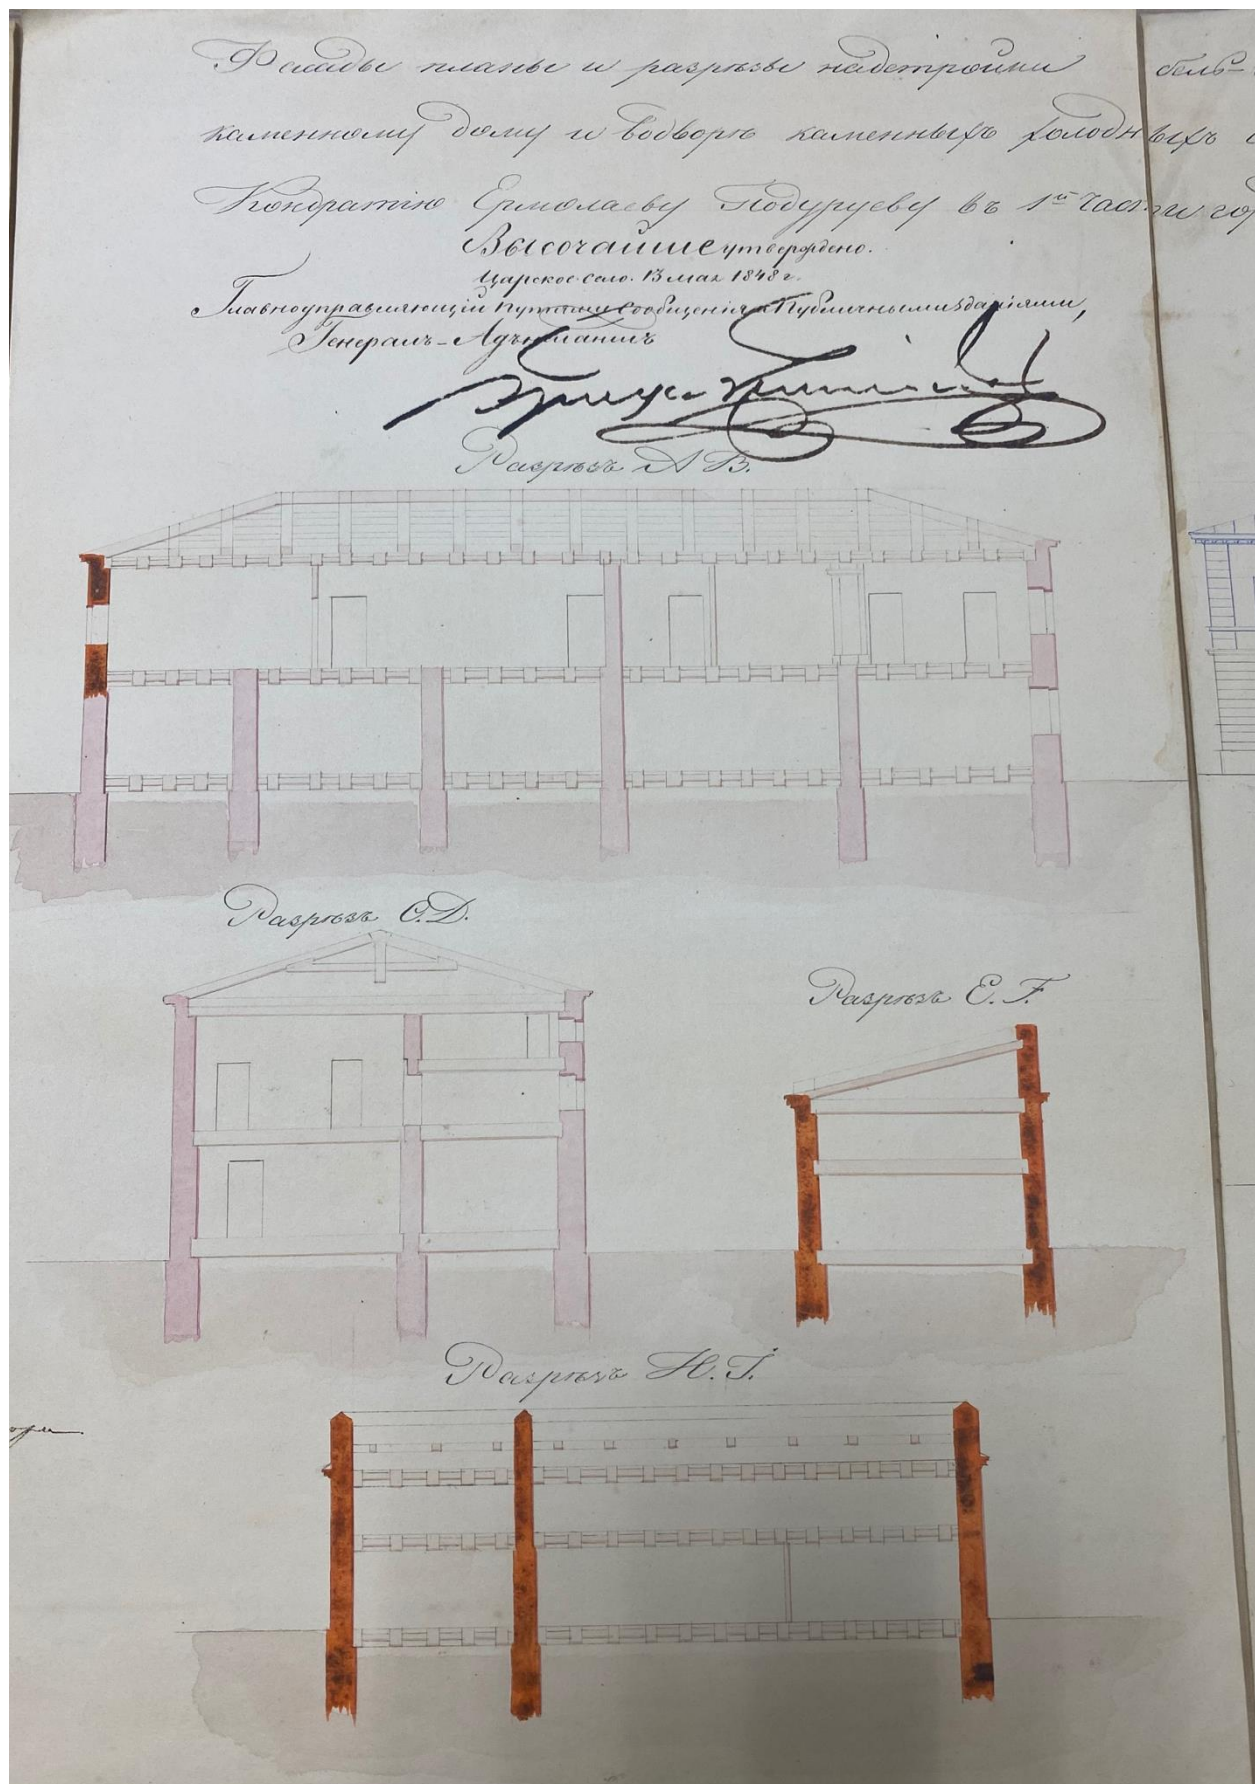 Фасады планы и разрезы надстройки бель-
каменному дому и во дворе каменныхъ холодныхъ
Кондратію Ермолаеву Подуруеву въ 1й части го
Высочайше утверждено.
Царское село. 13 мая 1848 г.
Главноуправляющій Путями Сообщенія и Публичными Зданіями,
Генералъ-Адъютантъ
Разрѣзъ А В.
Разрѣзъ С. D.
Разрѣзъ E. F.
Разрѣзъ H. I.